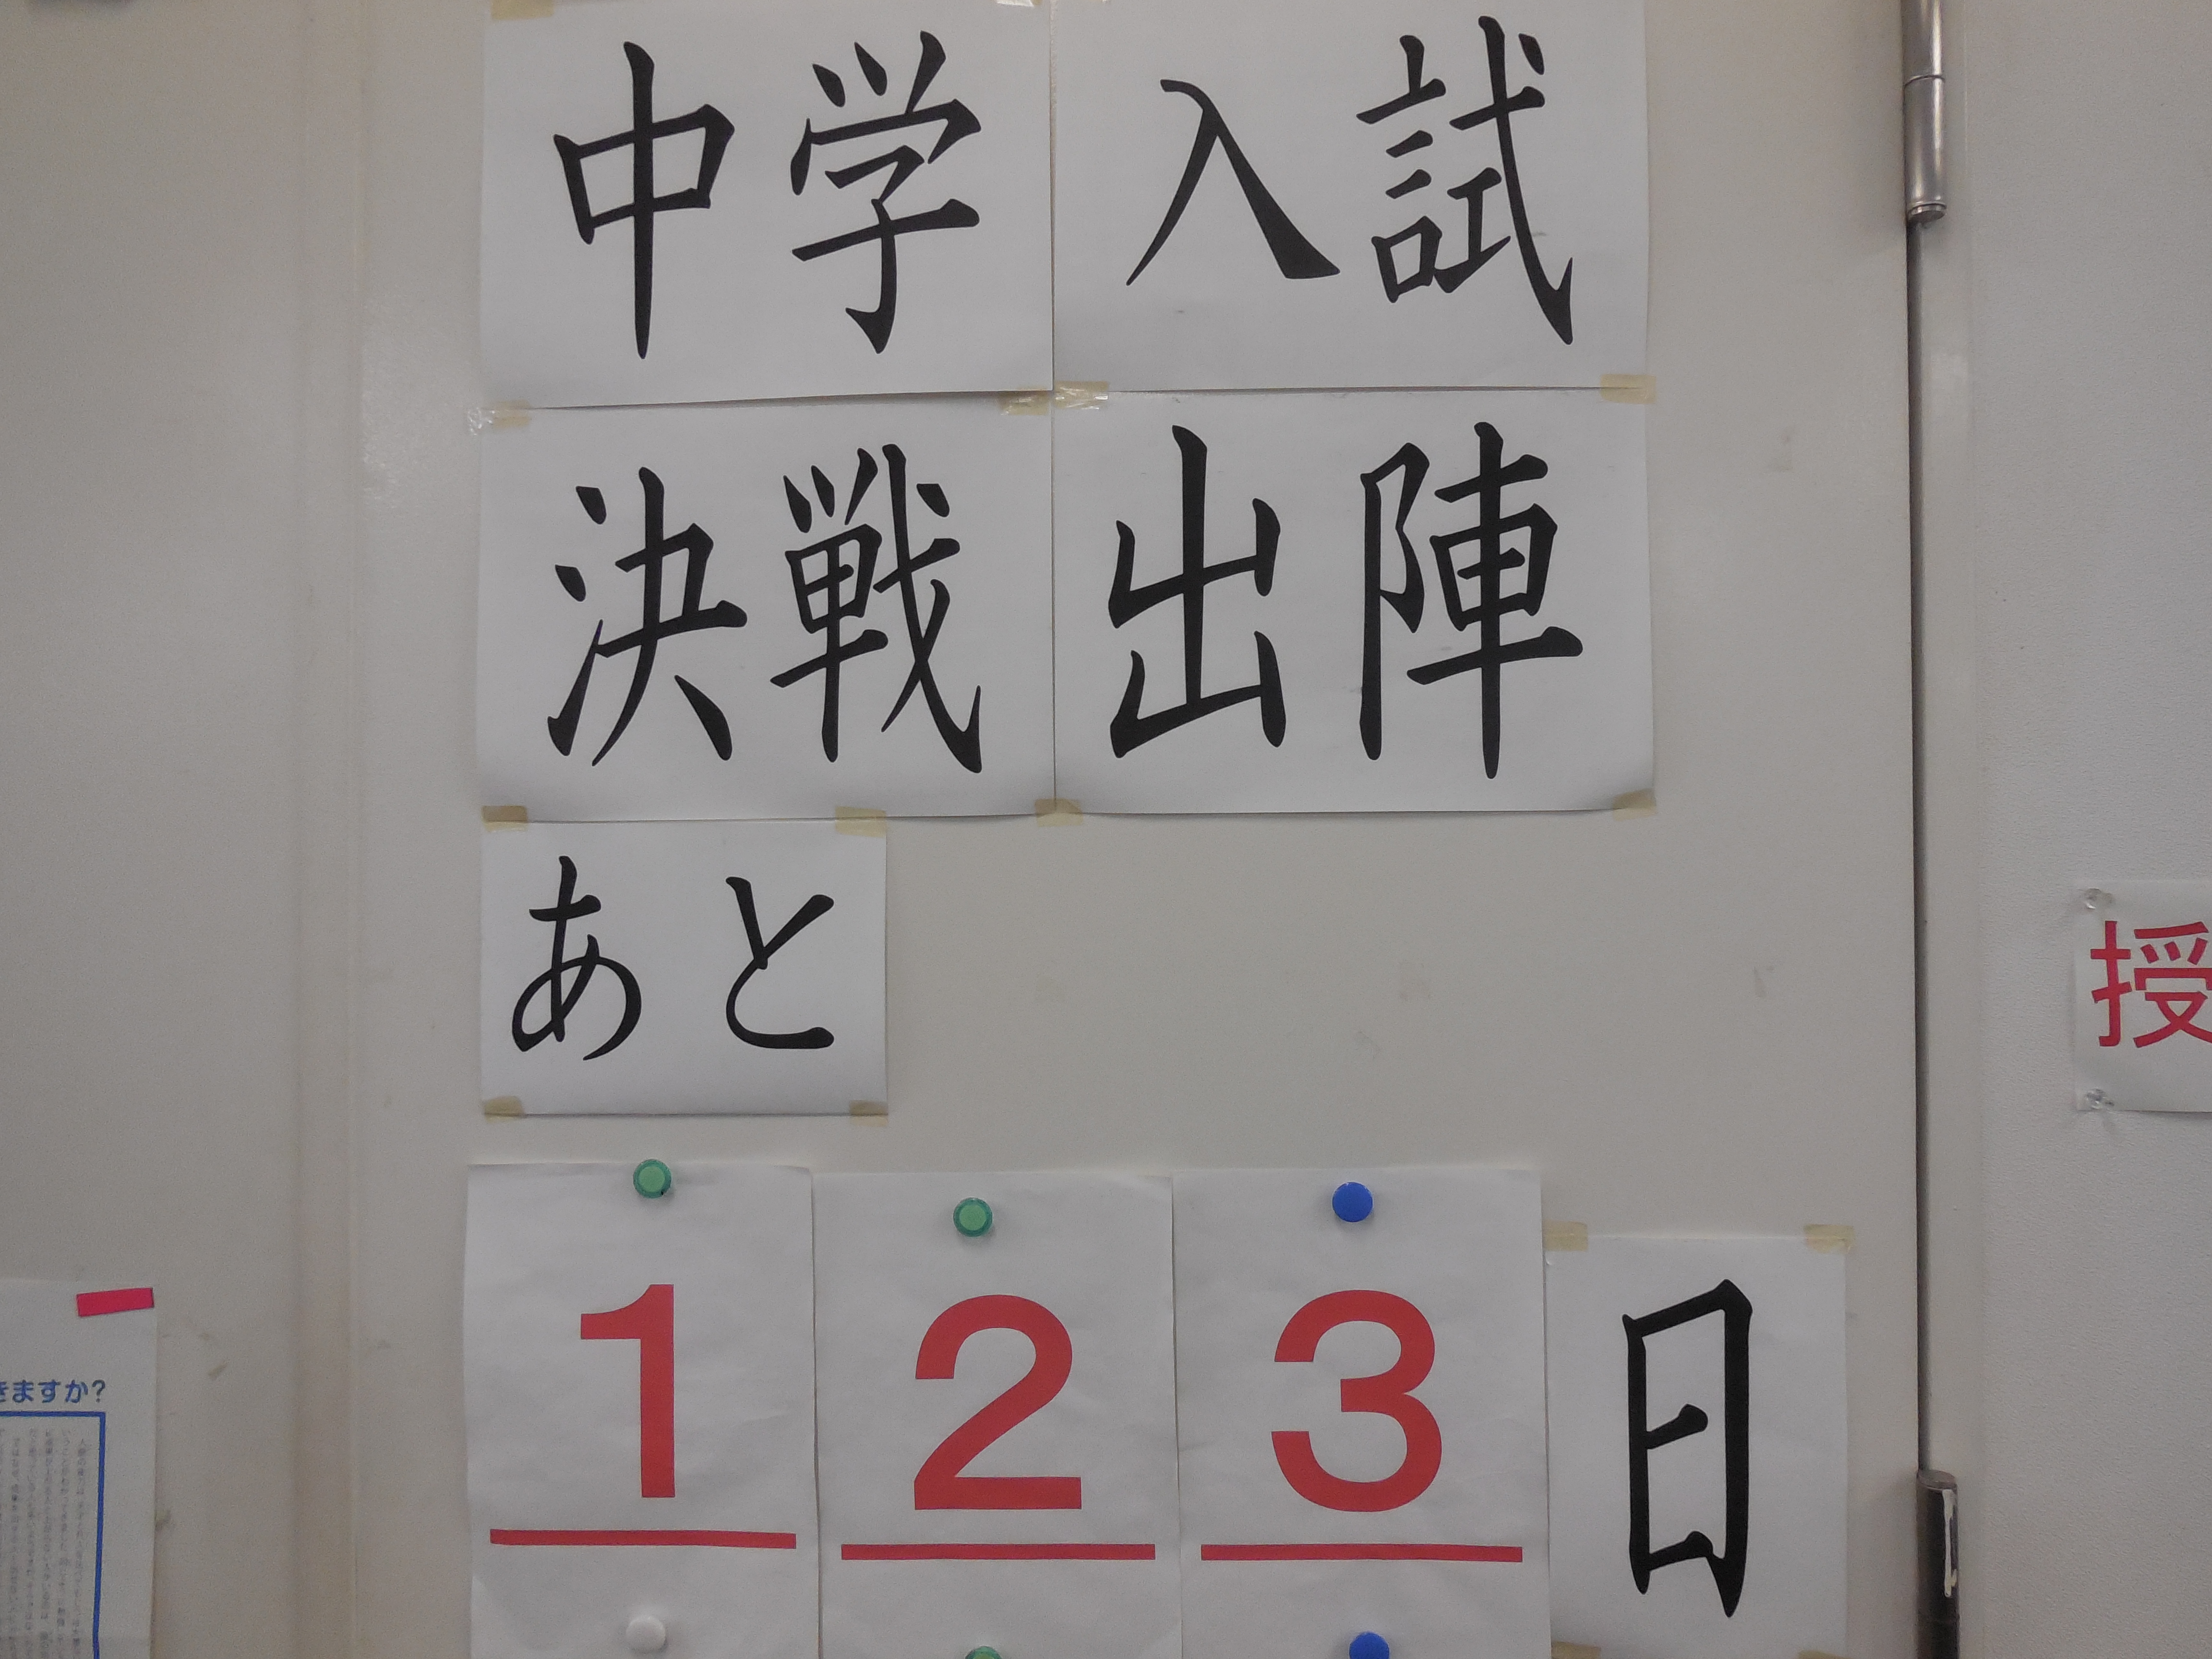 中学入試
決戦出陣
あと
123日
授
きますか?